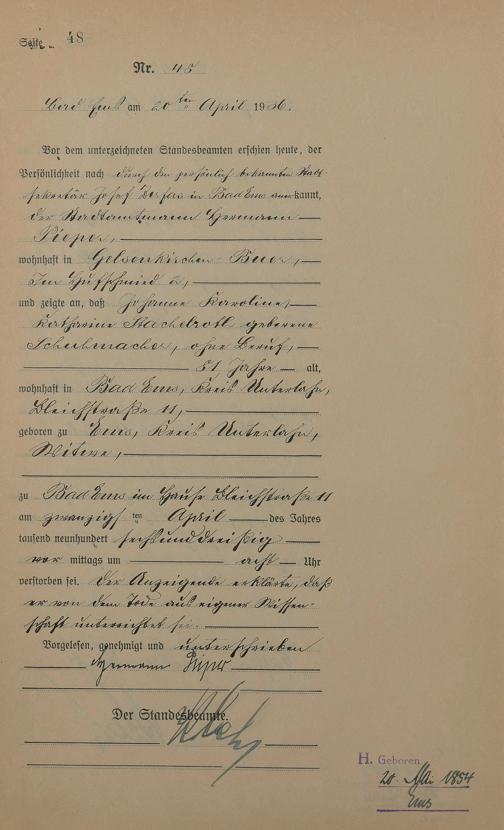 Seite 48
Nr. 45
Bad Ems am 20 ten April 1936.
Vor dem unterzeichneten Standesbeamten erschien heute, der
Persönlichkeit nach durch den persönlich bekannten Stadt-
sekretär Josef in Bad Ems anerkannt,
der Stadtamtmann Hermann
Pieper,
wohnhaft in Gelsenkirchen-Buer,
Im Hufschmied 2,
und zeigte an, daß Johanne Karoline,
Katharine geborene
Schuhmacher, ohne Beruf,
81 Jahre alt,
wohnhaft in Bad Ems, Kreis Unterlahn,
Bleichstraße 11,
geboren zu Ems, Kreis Unterlahn,
Witwe,
zu Bad Ems im Hause Bleichstraße 11
am zwanzigsten April des Jahres
tausend neunhundert sechsunddreißig
vor mittags um acht Uhr
verstorben sei. Der Anzeigende erklärte, daß
er von dem Tode aus eigener Wissen-
schaft unterrichtet sei.
Vorgelesen, genehmigt und unterschrieben
Hermann Pieper
Der Standesbeamte.
H. Geboren
20. Mai 1854
Ems